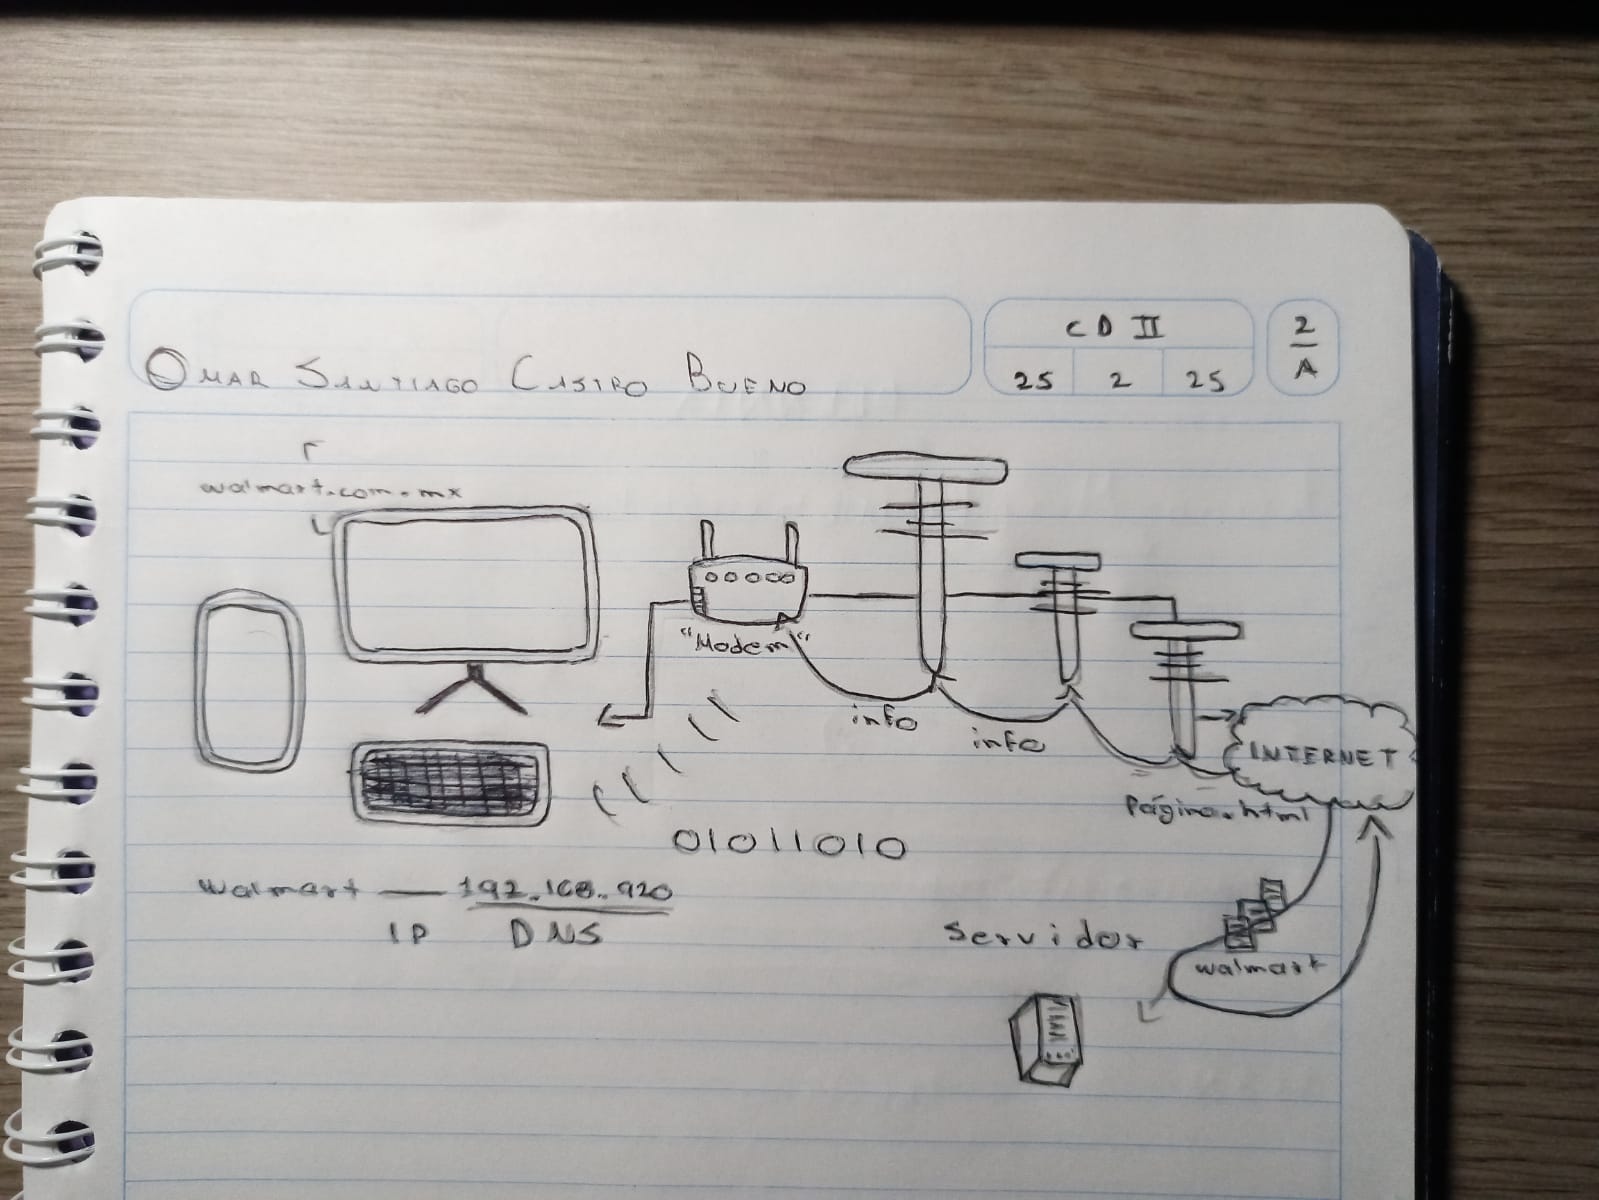 CD II
2
A
OMAR SANTIAGO CASTRO BUENO
25 2 25
walmart.com.mx
"Modem"
info
info
INTERNET
Página.html
01011010
walmart — 192.168.920
IP DNS
Servidor
walmart